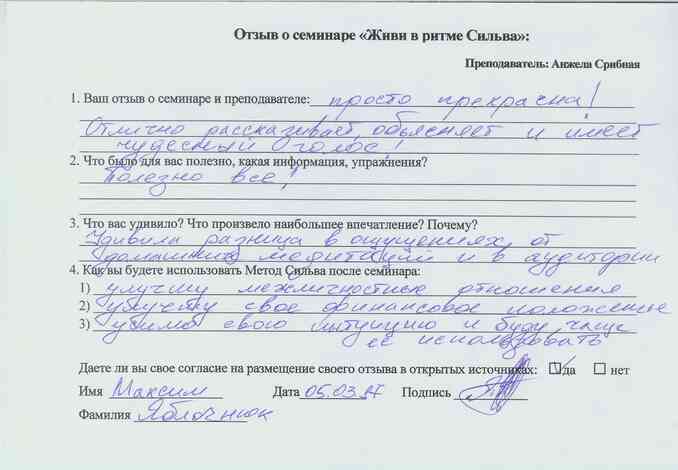 Отзыв о семинаре «Живи в ритме Сильва»:
Преподаватель: Анжела Срибная
1. Ваш отзыв о семинаре и преподавателе: просто прекрасна!
Отлично рассказывает, объясняет и имеет
чудесный голос!
2. Что было для вас полезно, какая информация, упражнения?
Полезно все!
3. Что вас удивило? Что произвело наибольшее впечатление? Почему?
Удивила разница в ощущениях, от
домашних медитаций и в аудитории
4. Как вы будете использовать Метод Сильва после семинара:
1) улучшу межличностные отношения
2) улучшу свое финансовое положение
3) свою интуицию и буду чаще
её использовать
Даете ли вы свое согласие на размещение своего отзыва в открытых источниках: да нет
Имя Максим Дата 05.03 Подпись
Фамилия Яблочнюк